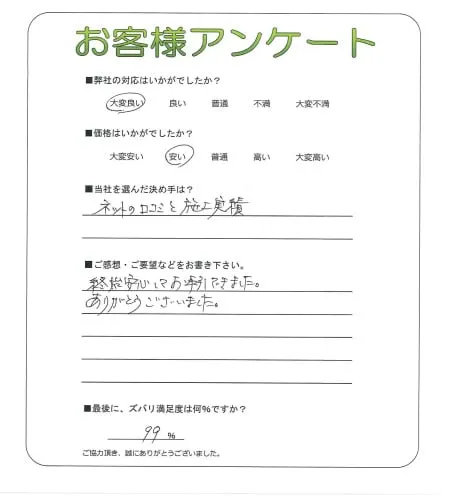 お客様アンケート
■弊社の対応はいかがでしたか？
大変良い 良い 普通 不満 大変不満
■価格はいかがでしたか？
大変安い 安い 普通 高い 大変高い
■当社を選んだ決め手は？
ネットの口コミと施工実積
■ご感想・ご要望などをお書き下さい。
終始安心してお取引できました。
ありがとうございました。
■最後に、ズバリ満足度は何％ですか？
99 %
ご協力頂き、誠にありがとうございました。